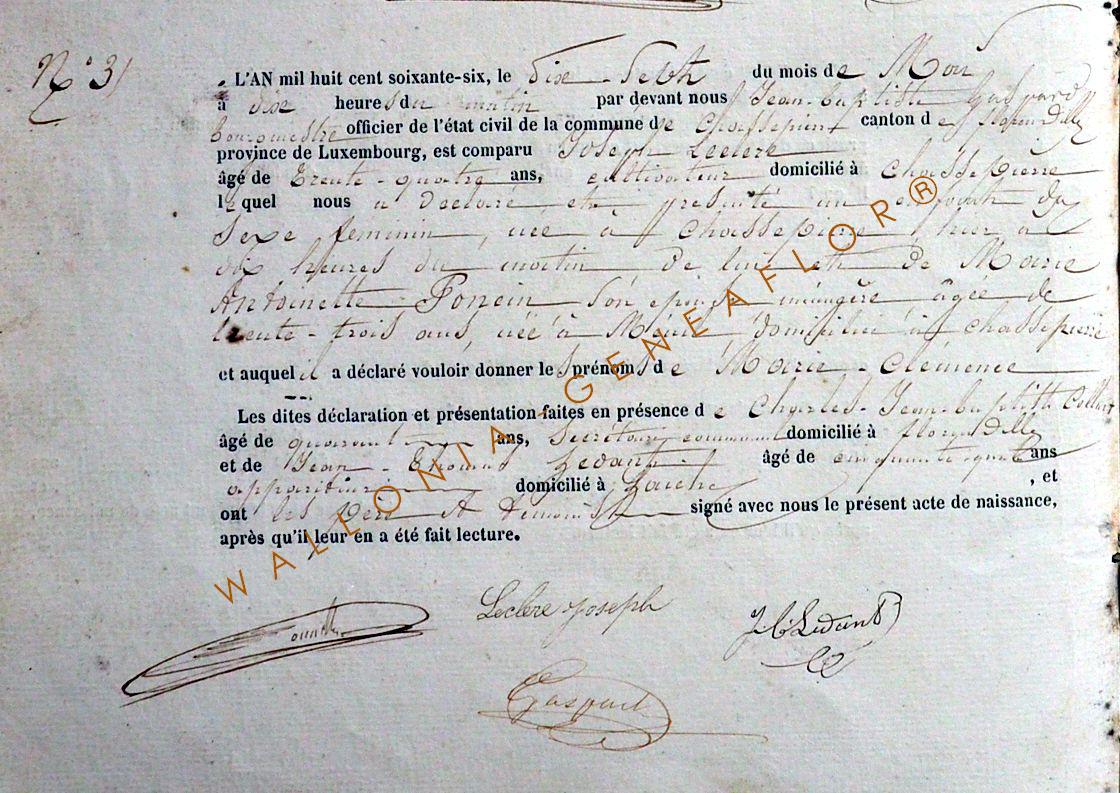 N° 31
L'AN mil huit cent soixante-six, le dix-Sept du mois de Mai
à dix heures du matin par devant nous Jean-baptiste Gaspard
bourgmestre officier de l'état civil de la commune de Chassepierre canton de florenville
province de Luxembourg, est comparu Joseph Leclere
âgé de trente-quatre ans, cultivateur domicilié à Chassepierre
lequel nous a déclaré et présenté un enfant du
sexe féminin, née à Chassepierre hier à
dix heures du matin de lui et de Marie
Antoinette Poncin son épouse ménagère âgée de
trente-trois ans, née à domiciliée à Chassepierre
et auquel il a déclaré vouloir donner les prénoms de Marie-Clémence
Les dites déclaration et présentation faites en présence de Charles-Jean-baptiste
âgé de quarante ans, Secrétaire communal domicilié à florenville
et de Jean-Thomas Ledant âgé de cinquante-quatre ans
appariteur domicilié à Laiche, et
ont les père et témoins signé avec nous le présent acte de naissance,
après qu'il leur en a été fait lecture.
WALLONIA - GENEAFLOR ®
Leclere Joseph
Ledant
Gaspard